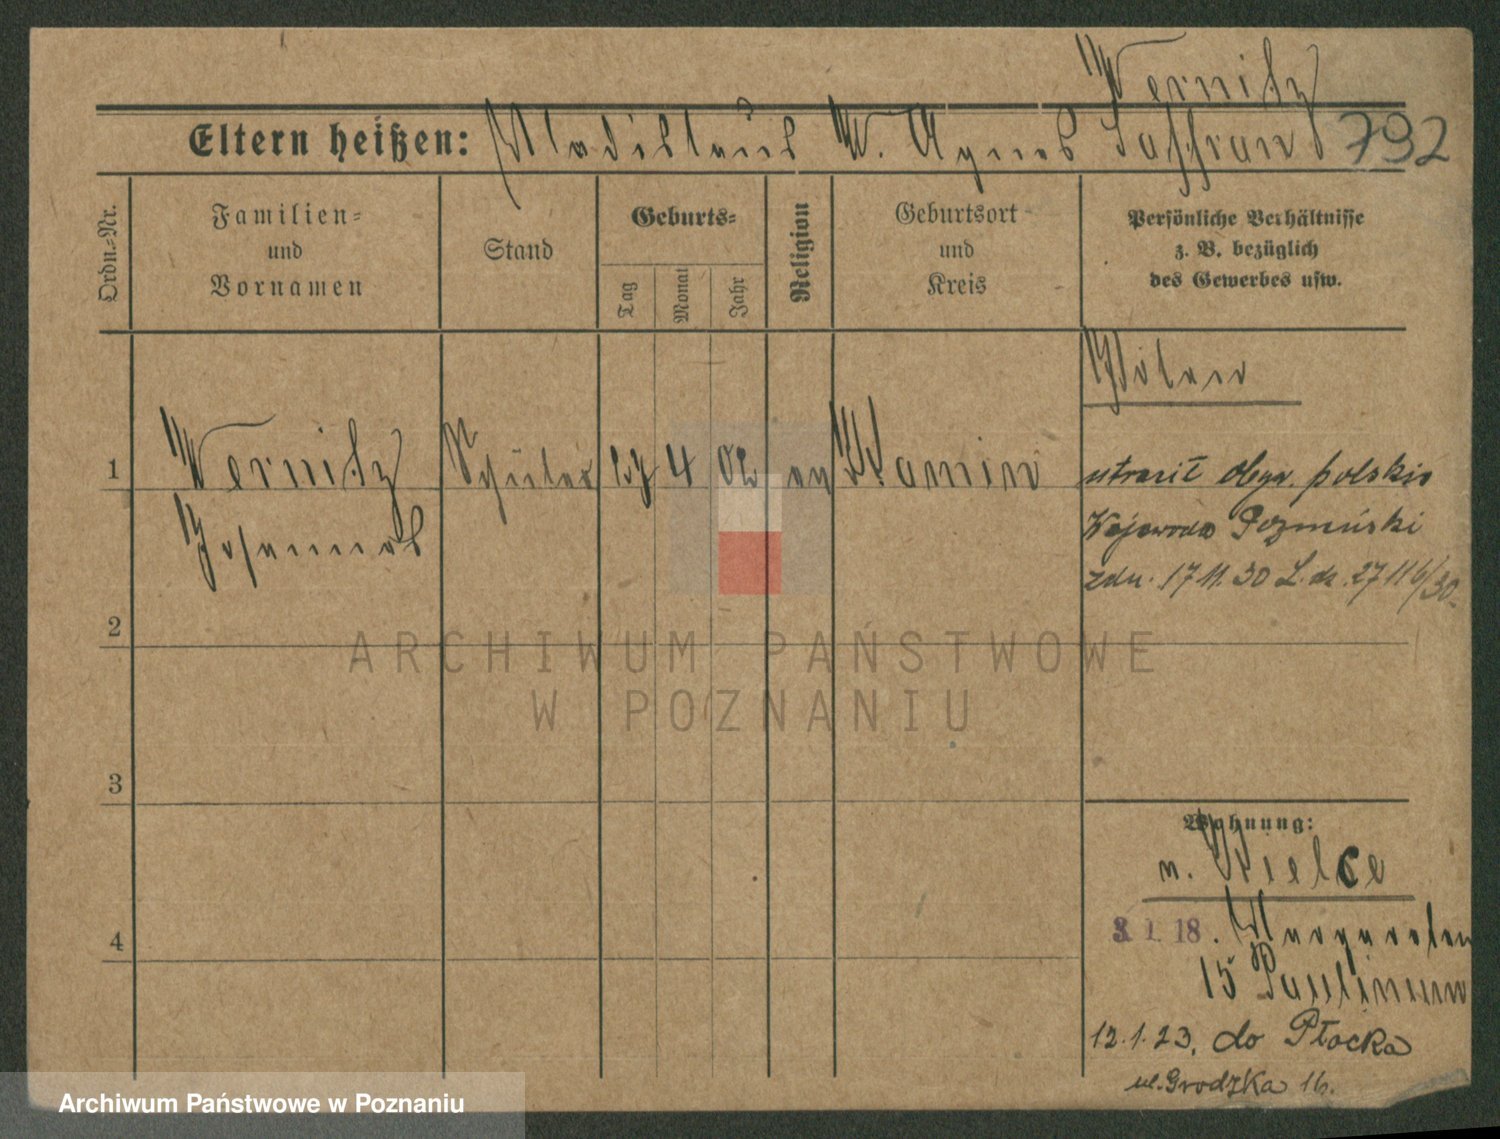 Wernitz
Eltern heißen: Wladislaus W. Agnes Saffran 792
Ordn.-Nr.
Familien-
und
Vornamen
Stand
Geburts-
Tag
Monat
Jahr
Religion
Geburtsort
und
Kreis
Persönliche Verhältnisse
z. B. bezüglich
des Gewerbes usw.
1 Wernitz Schüler 4 02 ev Kamin
Johannes
utracił obyw. polskie
Wojewoda Poznański
zdn. 17 11. 30 L. dz. 27116/30.
2
3
4
Wohnung:
n. Kielce
3. 1. 18. Margareten
15 Paulinum
12.1.23. do Płocka
ul. Grodzka 16.
ARCHIWUM PAŃSTWOWE
W POZNANIU
Archiwum Państwowe w Poznaniu